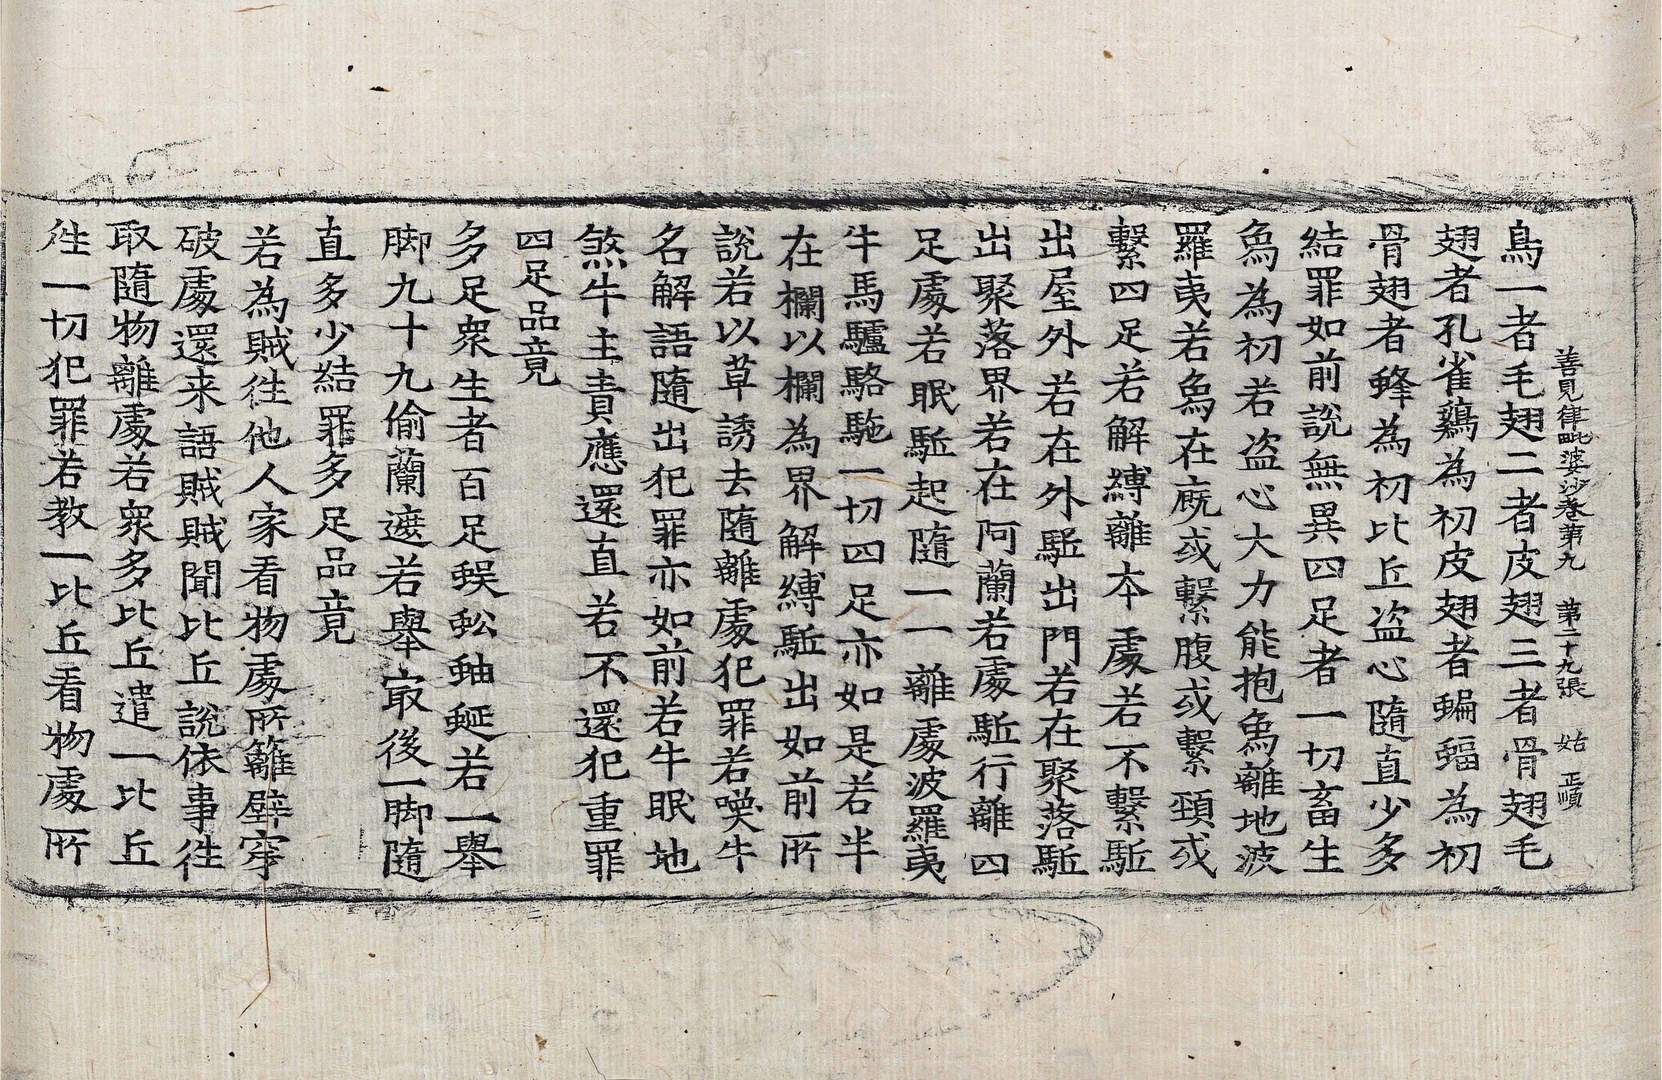 善見律毗婆沙卷第九 第二十九張 姑 正㥧
鳥一者毛翅二者皮翅三者骨翅毛
翅者孔雀鷄為初皮翅者蝙蝠為初
骨翅者蜂為初比丘盗心隨直少多
結罪如前說無異四足者一切畜生
烏為初若盗心大力能抱烏離地波
羅夷若烏在廐或繫腹或繫頸或
繫四足若解縛離夲處若不繫駈
出屋外若在外駈出門若在聚落駈
出聚落界若在阿蘭若處駈行離四
足處若眠駈起隨一一離處波羅夷
牛馬驢駱駞一切四足亦如是若半
在欄以欄為界解縛駈出如前所
說若以草誘去隨離處犯罪若喚牛
名解語隨出犯罪亦如前若牛眠地
煞牛主責應還直若不還犯重罪
四足品竟
多足衆生者百足蜈蚣蚰蜒若一舉
脚九十九偷蘭遮若舉㝡後一脚隨
直多少結罪多足品竟
若為賊徃他人家看物處所籬壁穿
破處還来語賊賊聞比丘說依事徃
取隨物離處若衆多比丘遣一比丘
徃一切犯罪若教一比丘看物處所